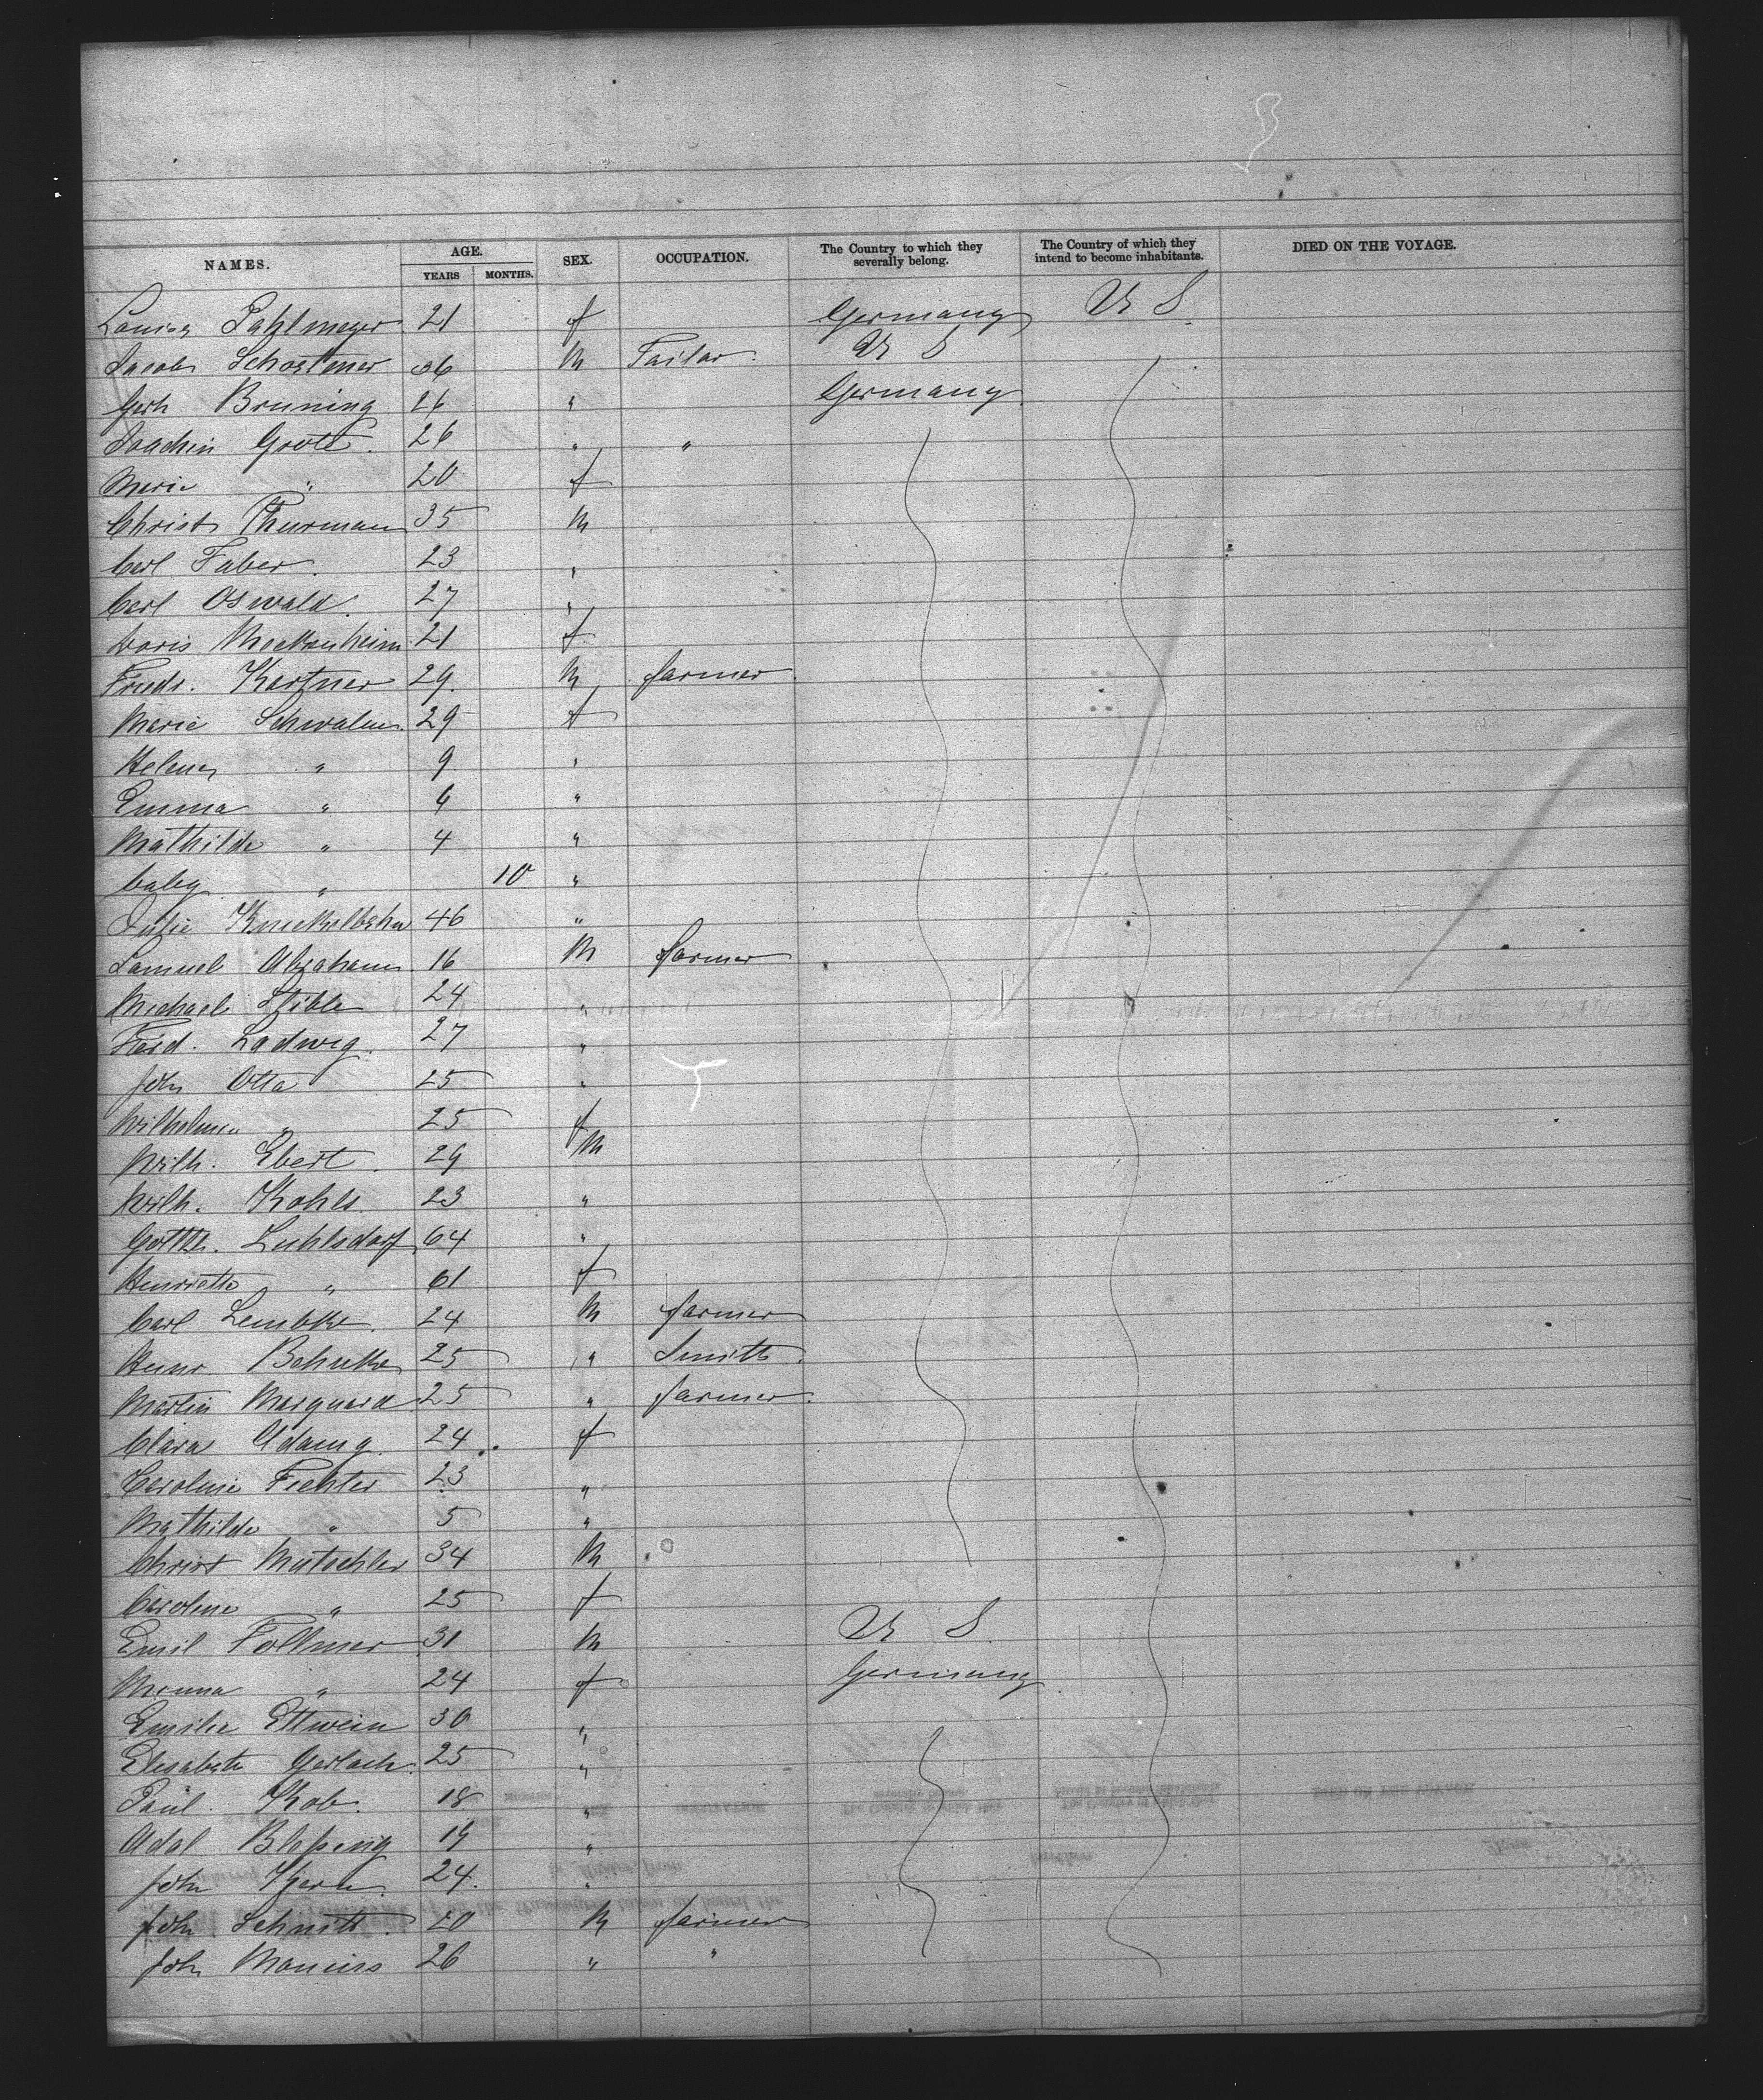 NAMES. AGE. YEARS MONTHS. SEX. OCCUPATION. The Country to which they severally belong. The Country of which they intend to become inhabitants. DIED ON THE VOYAGE.
Louise Pahlmeyer 21 f Germany U S
Jacob 36 M Tailor U S
Gerh Bruning 26 " Germany
Joachim Grote 26 " "
Marie " 20 f
Christ Thurman 35 M
Carl Faber 23 "
Carl Oswald 27 "
Doris 21 f
Friedr. Kastner 29 M farmer
Marie Schwalm 29 f
Helene " 9 "
Emma " 6 "
Mathilde " 4 "
baby " 10 "
Julie 46 "
Samuel Abraham 16 M farmer
Michael 24 "
Ferd. Ladwig 27 "
John Otto 25 "
Wilhelmine " 25 f
Wilh. Ebert 29 M
Wilh. Kohls 23 "
Gottl. 64 "
Henriette " 61 f
Carl Lembke 24 M farmer
Henr Behnke 25 " Smith
Martin Marquard 25 " farmer
Clara 24 f
Caroline Fichter 23 "
Mathilde " 5 "
Christ Mutschler 34 M
Caroline " 25 f
Emil Follmer 31 M U S
Minna " 24 f Germany
Emilie Ettwein 30 "
Elisabeth Gerlach 25 "
Paul Kob 18 "
Adal 19 "
John Kern 24 "
John Schmitt 20 M farmer
John 26 " "